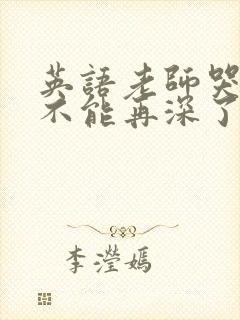 英語老師哭
不能再深了
李瀅嫣